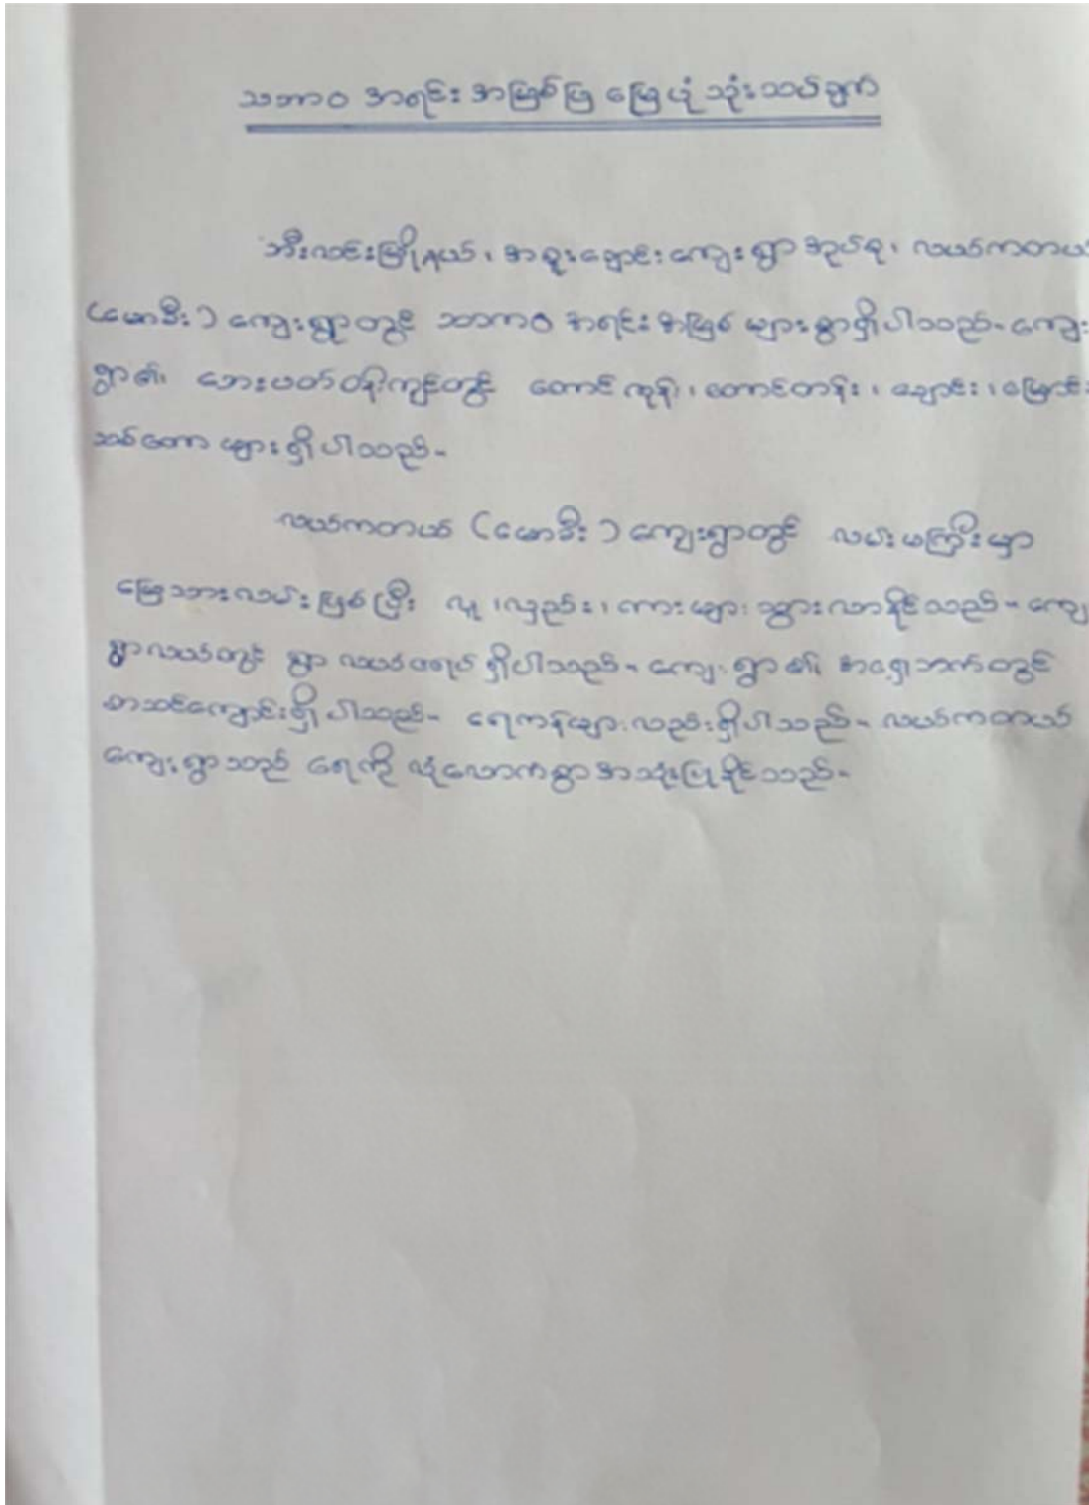 သဘာဝ အရင်း အမြစ်ပြ မြေပုံ သုံးသပ်ချက်
ဘီးလင်းမြို့နယ်၊ အစူးချောင်းကျေးရွာအုပ်စု၊ လယ်ကတယ်
(မောဒီး) ကျေးရွာတွင် သဘာဝ အရင်းအမြစ် များစွာရှိပါသည်။ ကျေး
ရွာ၏ ဘေးပတ်ဝန်းကျင်တွင် တောင်ကုန်း၊ တောင်တန်း၊ ချောင်း၊ မြောင်း
သစ်တော များရှိပါသည်။
လယ်ကတယ် (မောဒီး) ကျေးရွာတွင် လမ်းမကြီးမှာ
မြေသားလမ်းဖြစ်ပြီး လူ၊ လှည်း၊ ကားများ သွားလာနိုင်သည်။ ကျေး
ရွာလယ်တွင် ရွာ လယ်ဇရပ် ရှိပါသည်။ ကျေးရွာ၏ အရှေ့ဘက်တွင်
စာသင်ကျောင်းရှိပါသည်။ ရေကန်များလည်းရှိပါသည်။ လယ်ကတယ်
ကျေးရွာသည် ရေကို လုံလောက်စွာအသုံးပြုနိုင်သည်။